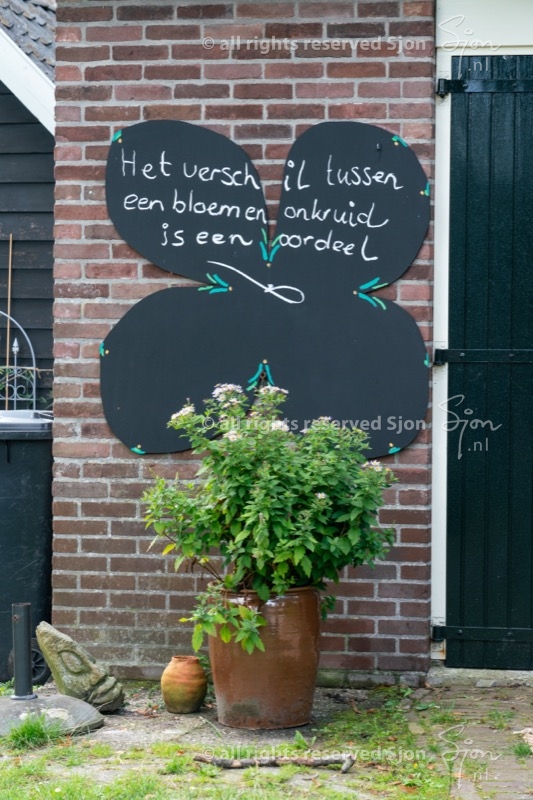 © all rights reserved Sjon
Sjon
.nl
Het versch il tussen
een bloem en onkruid
is een oordeel
© all rights reserved Sjon
Sjon
.nl
© all rights reserved Sjon
Sjon
.nl